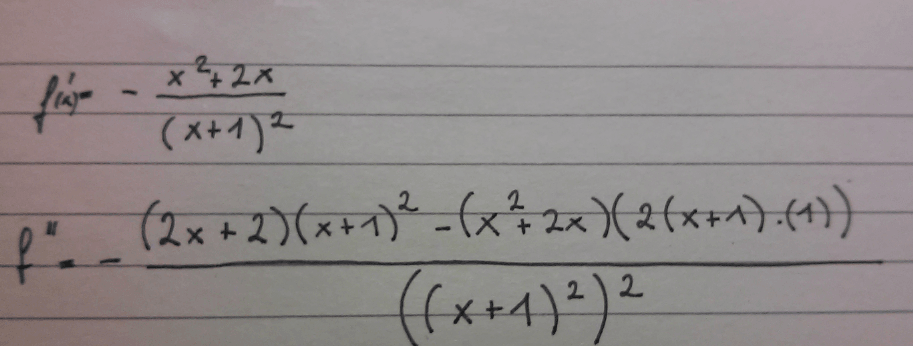 f'(x) = - (x² + 2x) / (x+1)²
f'' = - ((2x + 2)(x+1)² - (x² + 2x)(2(x+1)·(1))) / ((x+1)²)²